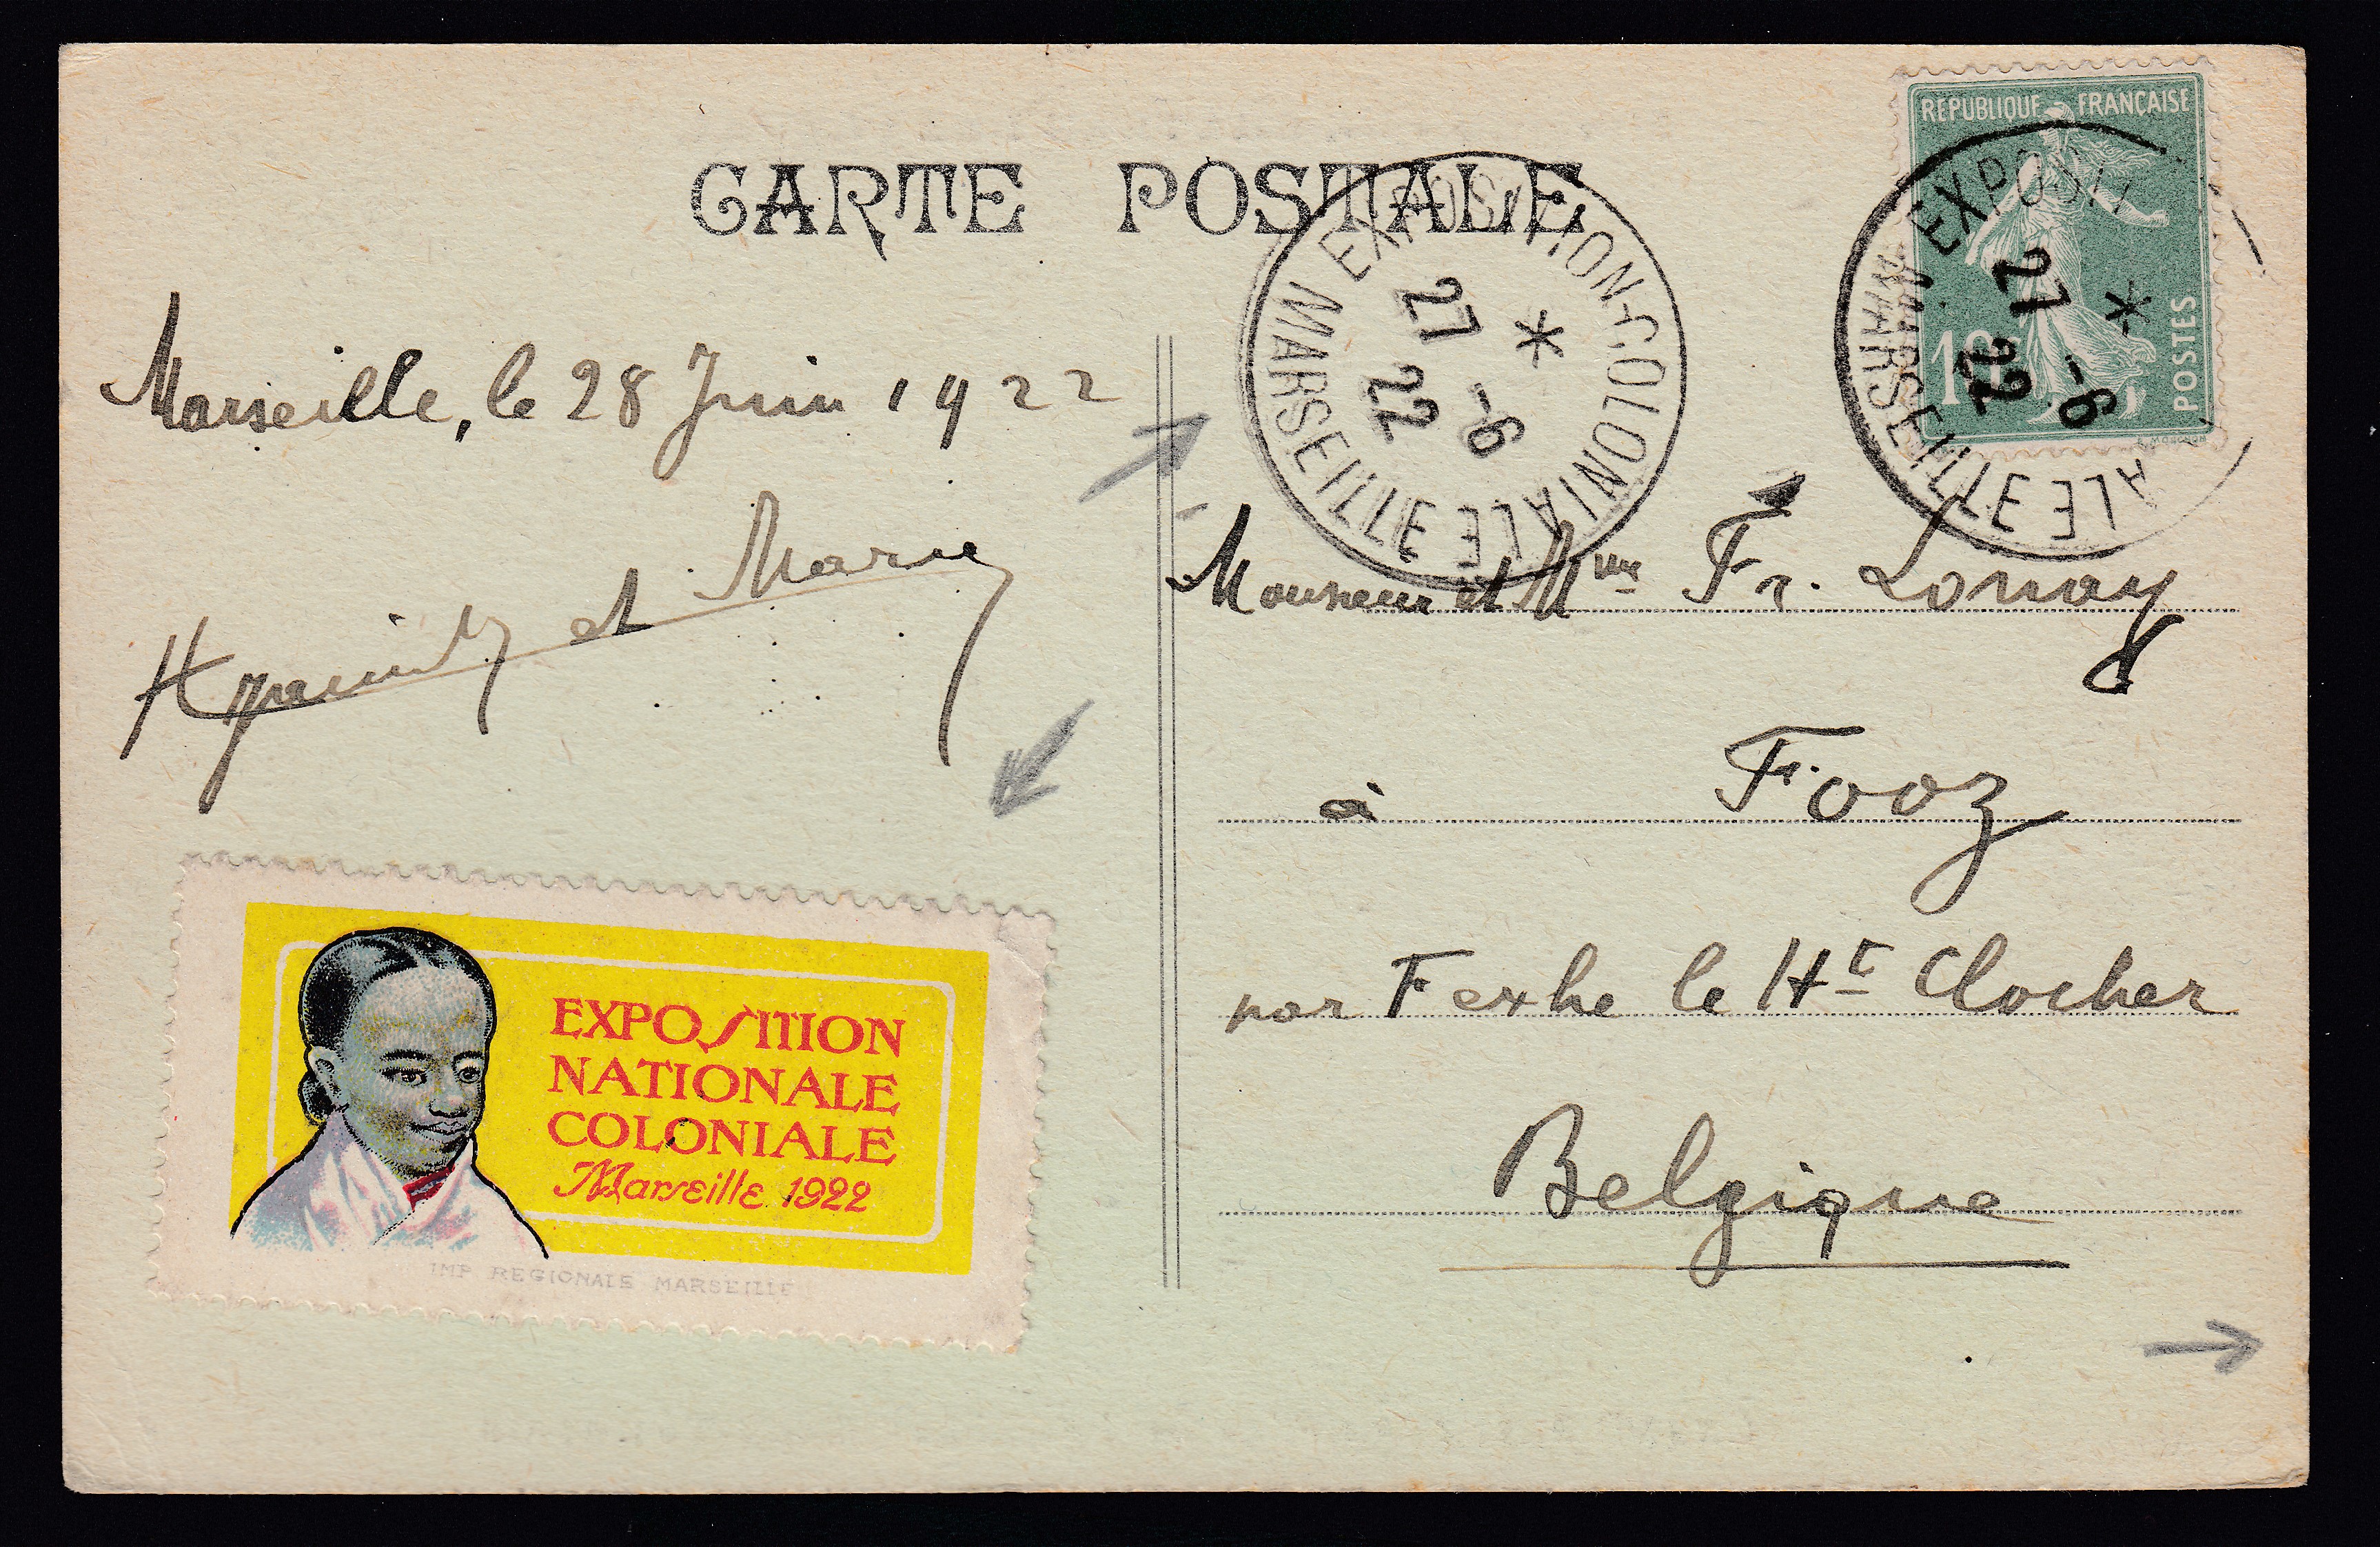 CARTE POSTALE
Marseille, le 28 Juin 1922
Hyacinthe et Marie
EXPOSITION
NATIONALE
COLONIALE
Marseille 1922
IMP REGIONALE MARSEILLE
REPUBLIQUE FRANÇAISE
10
POSTES
EXPOSIT ALE
MARSEILLE
*
27 -6
22
EXPOSITION-COLONIALE
MARSEILLE
*
27 -6
22
Monsieur et Mme Fr. Lonay
à Fooz
par Fexhe le Ht Clocher
Belgique